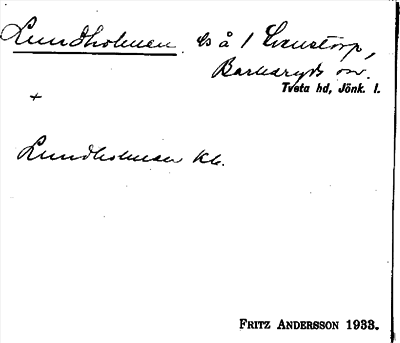 Lundholmen ls å 1 Evastorp,
Barkeryds sn.
Tveta hd, Jönk. l.
+
Lundholmen Kb.
FRITZ ANDERSSON 1933.